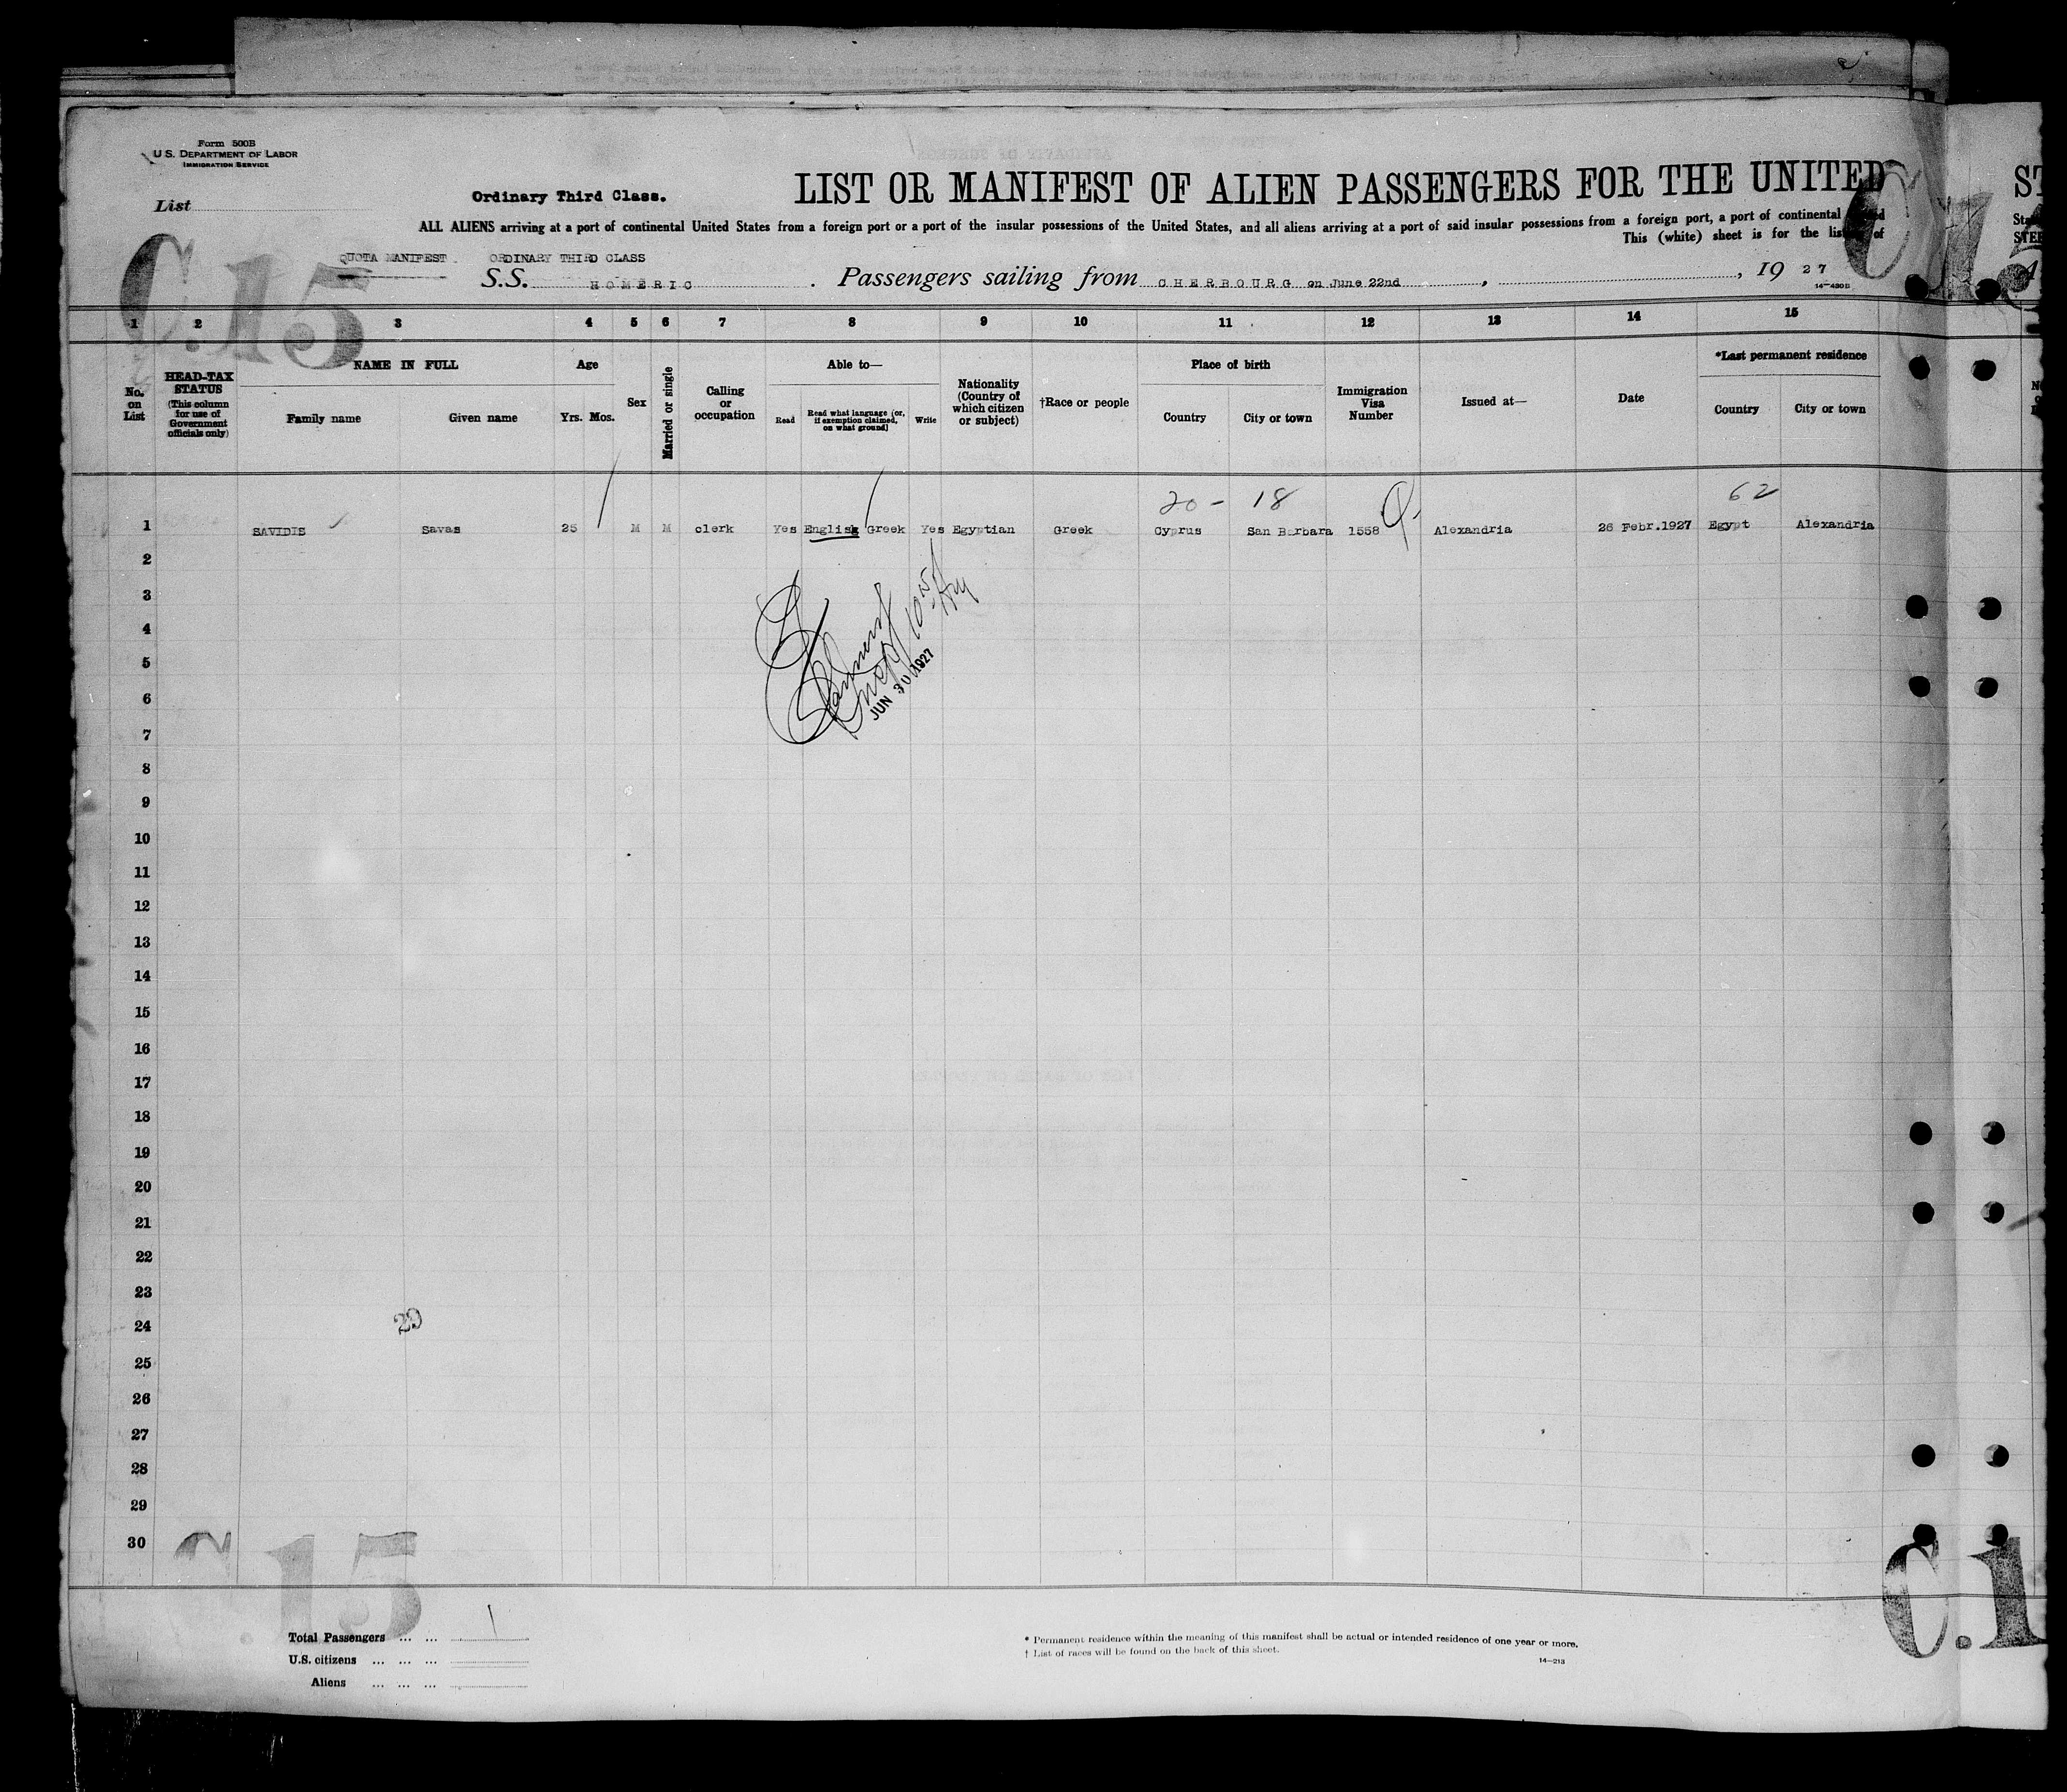 Form 500B
U.S. DEPARTMENT OF LABOR
IMMIGRATION SERVICE
List
Ordinary Third Class.
LIST OR MANIFEST OF ALIEN PASSENGERS FOR THE UNITED
ST
ALL ALIENS arriving at a port of continental United States from a foreign port or a port of the insular possessions of the United States, and all aliens arriving at a port of said insular possessions from a foreign port, a port of continental
This (white) sheet is for the listing of
C.15
QUOTA MANIFEST. ORDINARY THIRD CLASS
S.S. HOMERIC. Passengers sailing from CHERBOURG on June 22nd, , 19 27
14-430B
1 2 3 4 5 6 7 8 9 10 11 12 13 14 15
No. on List
HEAD-TAX STATUS
(This column for use of Government officials only)
NAME IN FULL
Family name Given name
Age
Yrs. Mos.
Sex
Married or single
Calling or occupation
Able to—
Read Read what language (or, if exemption claimed, on what ground) Write
Nationality (Country of which citizen or subject)
†Race or people
Place of birth
Country City or town
Immigration Visa Number
Issued at—
Date
*Last permanent residence
Country City or town
20 - 18 62
1 SAVIDIS Savas 25 M M clerk Yes English Greek Yes Egyptian Greek Cyprus San Barbara 1558 Alexandria 26 Febr.1927 Egypt Alexandria
2
3
4
5
6
7
8
9
10
11
12
13
14
15
16
17
18
19
20
21
22
23
24
25
26
27
28
29
30
JUN 30 1927
29
C.15
C.1
Total Passengers ... ... 1
U.S. citizens ... ... ...
Aliens ... ... ...
* Permanent residence within the meaning of this manifest shall be actual or intended residence of one year or more.
† List of races will be found on the back of this sheet.
14-213